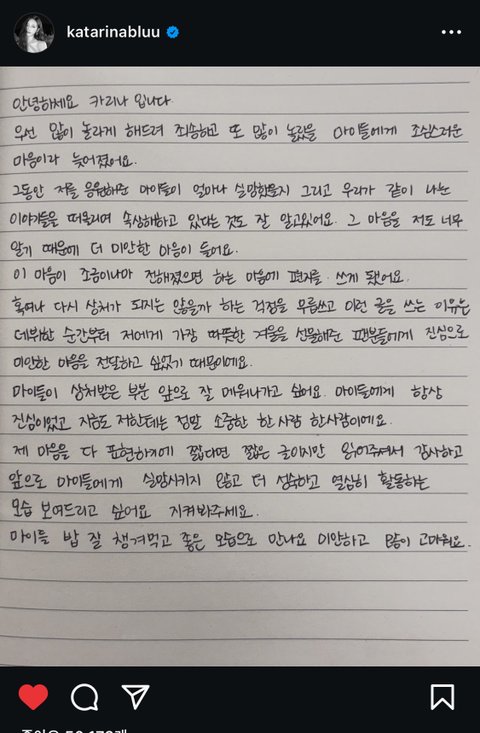 katarinabluu
안녕하세요 카리나 입니다
우선 많이 놀라게 해드려 죄송하고 또 많이 놀랐을 마이들에게 조심스러운
마음이라 늦어졌어요.
그동안 저를 응원해준 마이들이 얼마나 실망했을지 그리고 우리가 같이 나눈
이야기들을 떠올리며 속상해하고 있다는 것도 잘 알고있어요. 그 마음을 저도 너무
알기 때문에 더 미안한 마음이 들어요.
이 마음이 조금이나마 전해졌으면 하는 마음에 편지를 쓰게 됐어요.
혹여나 다시 상처가 되지는 않을까 하는 걱정을 무릅쓰고 이런 글을 쓰는 이유는
데뷔한 순간부터 저에게 가장 따뜻한 겨울을 선물해준 팬분들에게 진심으로
미안한 마음을 전달하고 싶었기 때문이에요.
마이들이 상처받은 부분 앞으로 잘 메워나가고 싶어요. 마이들에게 항상
진심이었고 지금도 저한테는 정말 소중한 한 사람 한사람이에요.
제 마음을 다 표현하기에 짧다면 짧은 글이지만 읽어주셔서 감사하고
앞으로 마이들에게 실망시키지 않고 더 성숙하고 열심히 활동하는
모습 보여드리고 싶어요 지켜봐주세요.
마이들 밥 잘 챙겨먹고 좋은 모습으로 만나요 미안하고 많이 고마워요.